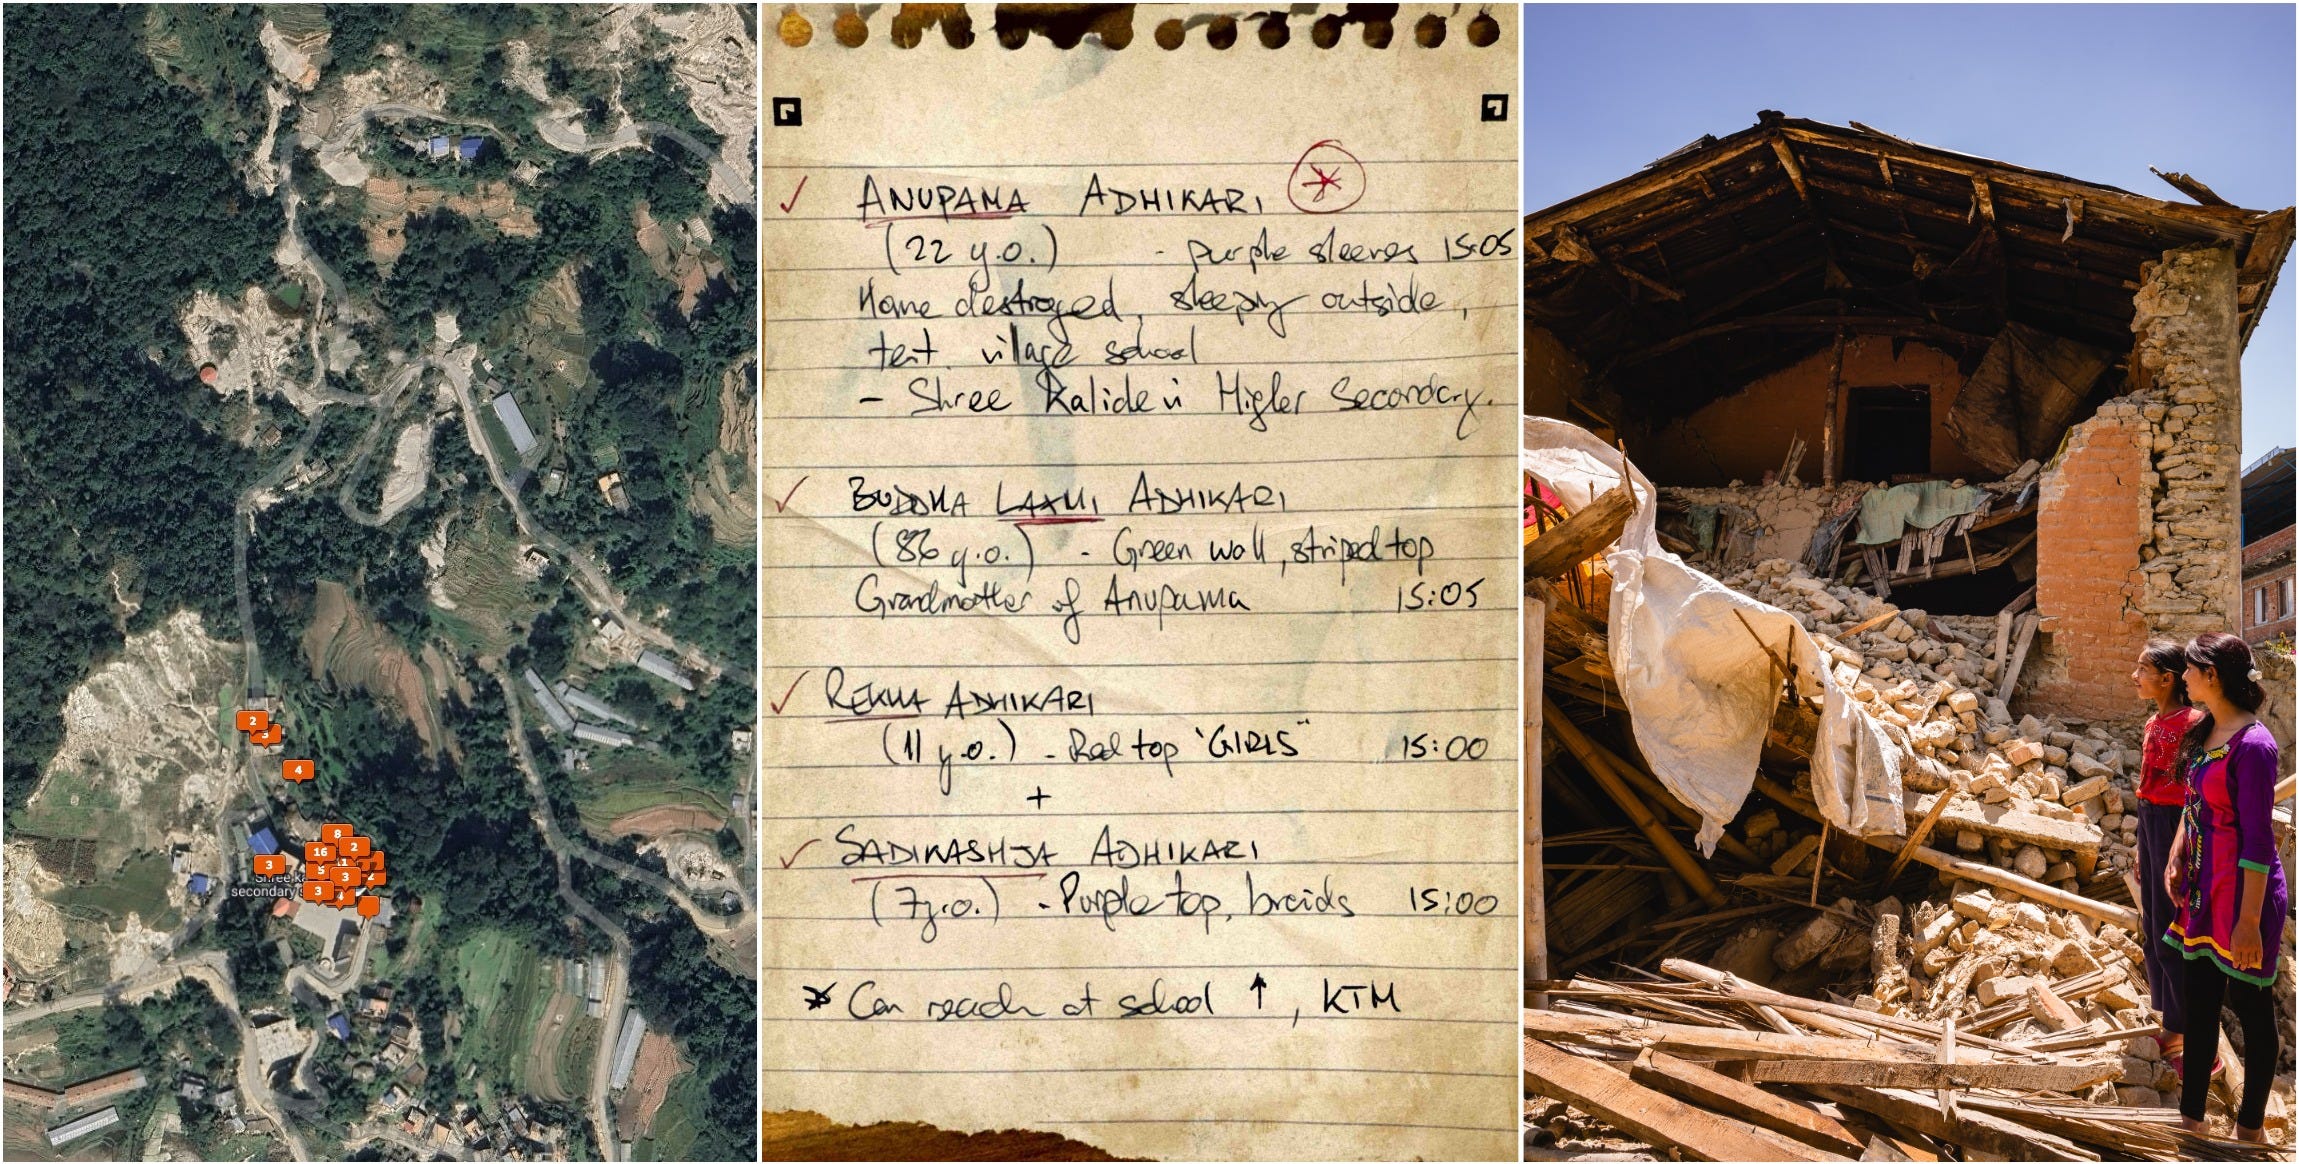 2
3
4
8
2
16
11
3
5
3
2
3
4
Shree ka
secondary s
ANUPAMA ADHIKARI
(22 y.o.) - purple sleeves 15:05
Home destroyed, sleeping outside,
tent village school
- Shree Kalidevi Higher Secondary.
BUDDHA LAXMI ADHIKARI
(86 y.o.) - Green wall, striped top
Grandmother of Anupama 15:05
REKHA ADHIKARI
(11 y.o.) - Red top "GIRLS" 15:00
+
SADIKASHJA ADHIKARI
(7y.o.) - Purple top, braids 15:00
* Can reach at school ↑, KTM
GIRLS